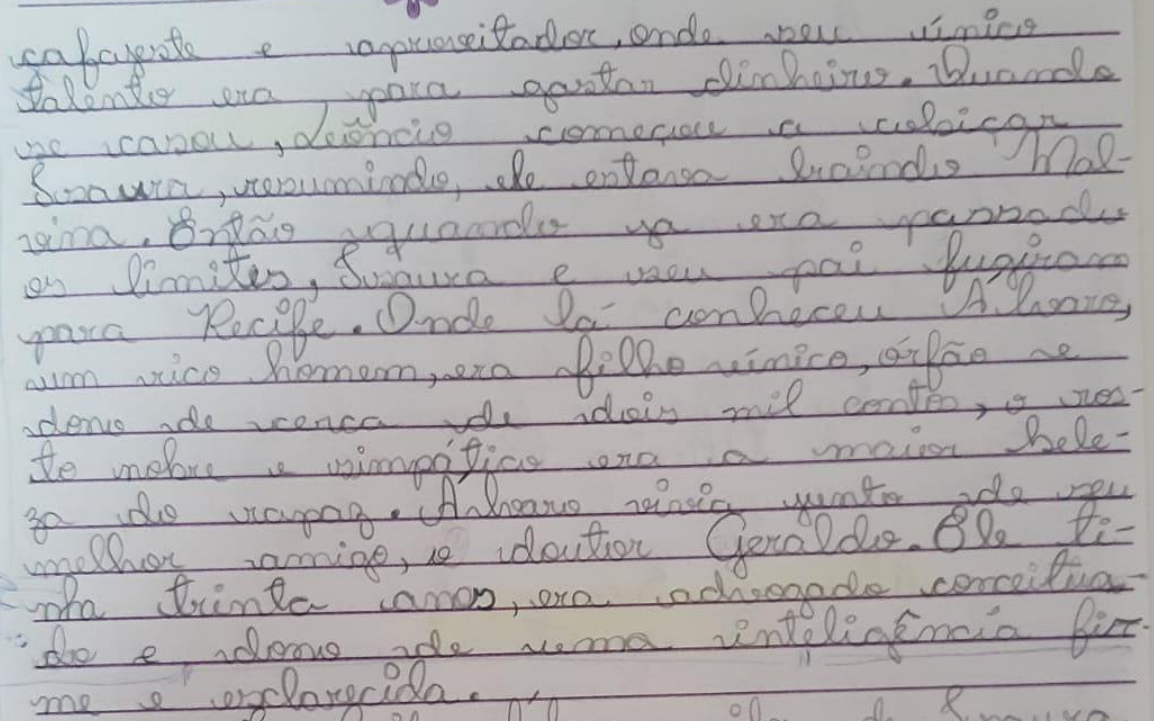 cafajeste e aproveitador, onde seu único
talento era, para gastar dinheiro. Quando
se casou, Leôncio começou a cobiçar
Isaura, resumindo, ele estava traindo Mal-
vina. Então quando ja era passado
os limites, Isaura e seu pai fugiram
para Recife. Onde lá conheceu Álvaro,
um rico homem, era filho único, órfão e
dono de cerca de dois mil contos, o ros-
to nobre e simpático era a maior bele-
za do rapaz. Álvaro vivia junto de seu
melhor amigo, o doutor Geraldo. Ele ti-
nha trinta anos, era advogado conceitua-
do e dono de uma inteligência fir-
me e esclarecida.